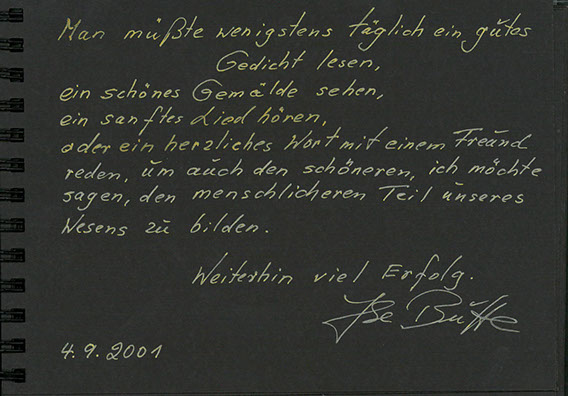 Man müßte wenigstens täglich ein gutes
Gedicht lesen,
ein schönes Gemälde sehen,
ein sanftes Lied hören,
oder ein herzliches Wort mit einem Freund
reden, um auch den schöneren, ich möchte
sagen, den menschlicheren Teil unseres
Wesens zu bilden.
Weiterhin viel Erfolg.
4.9.2001